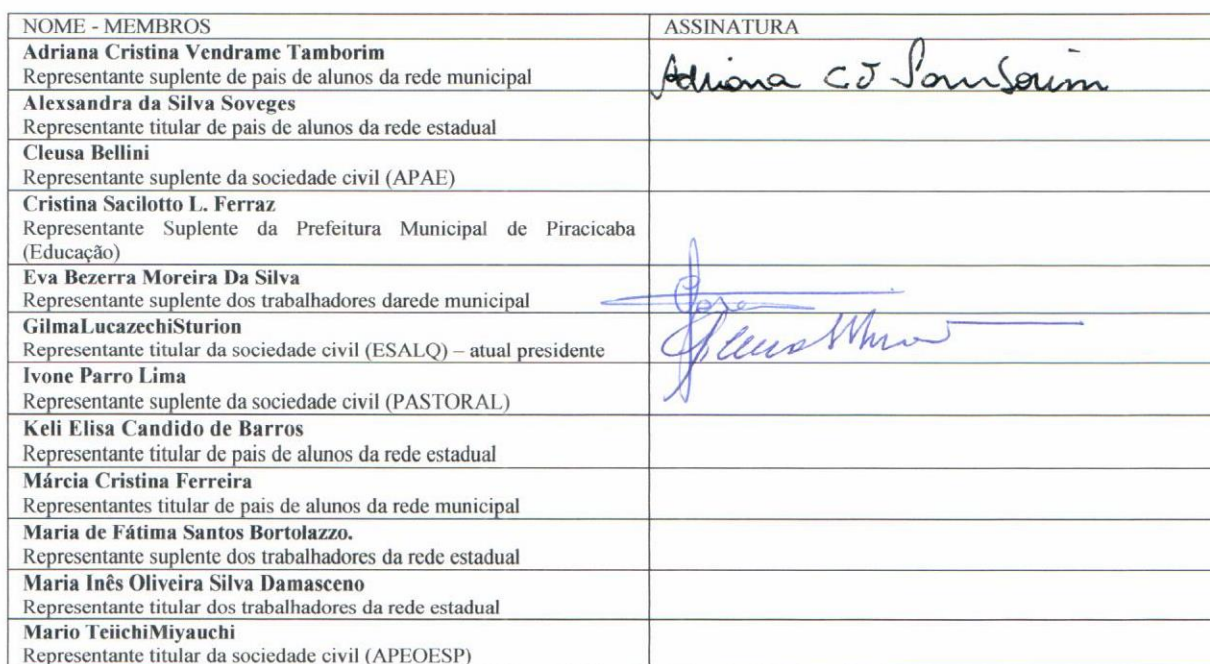 NOME - MEMBROS ASSINATURA
Adriana Cristina Vendrame Tamborim
Representante suplente de pais de alunos da rede municipal
Adriana C J Tamborim
Alexsandra da Silva Soveges
Representante titular de pais de alunos da rede estadual
Cleusa Bellini
Representante suplente da sociedade civil (APAE)
Cristina Sacilotto L. Ferraz
Representante Suplente da Prefeitura Municipal de Piracicaba
(Educação)
Eva Bezerra Moreira Da Silva
Representante suplente dos trabalhadores darede municipal
GilmaLucazechiSturion
Representante titular da sociedade civil (ESALQ) – atual presidente
Ivone Parro Lima
Representante suplente da sociedade civil (PASTORAL)
Keli Elisa Candido de Barros
Representante titular de pais de alunos da rede estadual
Márcia Cristina Ferreira
Representantes titular de pais de alunos da rede municipal
Maria de Fátima Santos Bortolazzo.
Representante suplente dos trabalhadores da rede estadual
Maria Inês Oliveira Silva Damasceno
Representante titular dos trabalhadores da rede estadual
Mario TeiichiMiyauchi
Representante titular da sociedade civil (APEOESP)